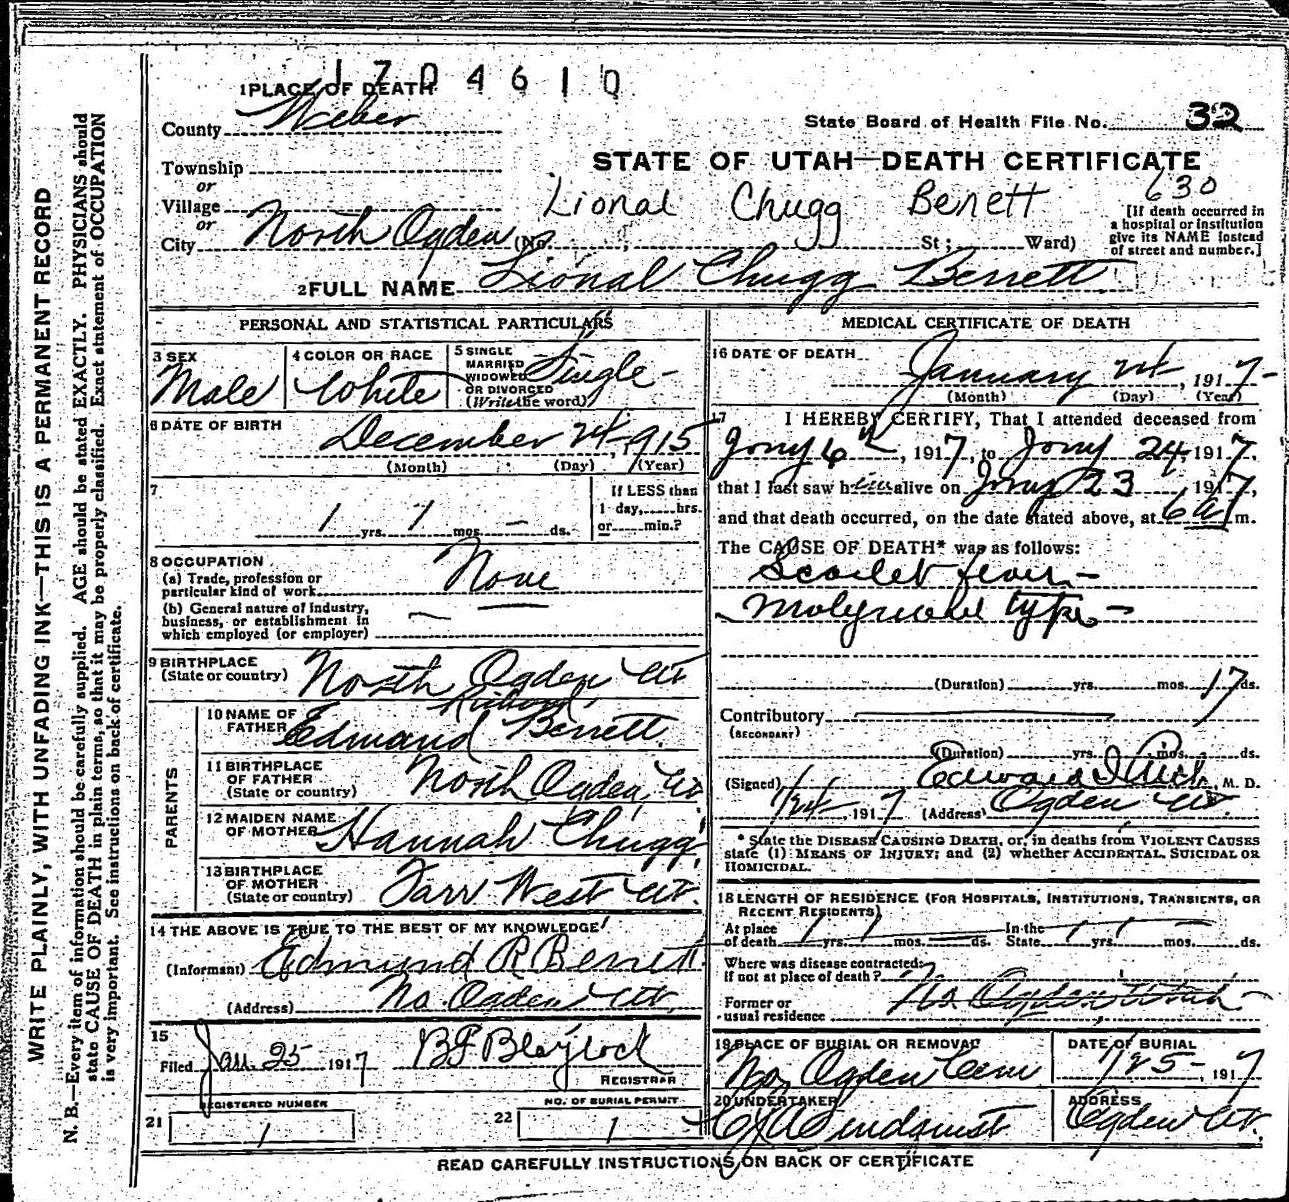 1 7 0 4 6 1 0
1 PLACE OF DEATH
County Weber
State Board of Health File No. 32
Township
or
STATE OF UTAH—DEATH CERTIFICATE
Village
or
Lional Chugg Berett 630
City North Ogden (No. St; Ward)
[If death occurred in a hospital or institution give its NAME instead of street and number.]
2 FULL NAME Lional Chugg Berrett
PERSONAL AND STATISTICAL PARTICULARS
3 SEX
Male
4 COLOR OR RACE
White
5 SINGLE
MARRIED
WIDOWED
OR DIVORCED
(Write the word)
Single
6 DATE OF BIRTH
December 24, 1915
(Month) (Day) (Year)
7
1 yrs. 1 mos. — ds.
If LESS than
1 day, hrs.
or min.?
8 OCCUPATION
(a) Trade, profession or
particular kind of work None
(b) General nature of industry,
business, or establishment in
which employed (or employer)
9 BIRTHPLACE
(State or country) North Ogden Ut
PARENTS
10 NAME OF
FATHER Edmund Berrett
11 BIRTHPLACE
OF FATHER
(State or country) North Ogden, Ut.
12 MAIDEN NAME
OF MOTHER Hannah Chugg
13 BIRTHPLACE
OF MOTHER
(State or country) Farr West Ut.
14 THE ABOVE IS TRUE TO THE BEST OF MY KNOWLEDGE
(Informant) Edmund R Berrett.
(Address) No. Ogden Ut.
15
Filed Jan. 25 1917 BF Blaylock
REGISTRAR
REGISTERED NUMBER
21 1
NO. OF BURIAL PERMIT
22 1
MEDICAL CERTIFICATE OF DEATH
16 DATE OF DEATH
January 24, 1917-
(Month) (Day) (Year)
17 I HEREBY CERTIFY, That I attended deceased from
Jany 6th, 1917, to Jany 24, 1917,
that I last saw him alive on Jany 23 1917,
and that death occurred, on the date stated above, at 6 a m.
The CAUSE OF DEATH* was as follows:
Scarlet fever -
type -
(Duration) yrs. mos. 17 ds.
Contributory
(SECONDARY)
(Duration) yrs. mos. ds.
(Signed) Edward I Rich, M. D.
1/24 1917 (Address) Ogden Ut.
* State the DISEASE CAUSING DEATH, or, in deaths from VIOLENT CAUSES
state (1) MEANS OF INJURY; and (2) whether ACCIDENTAL, SUICIDAL OR
HOMICIDAL.
18 LENGTH OF RESIDENCE (FOR HOSPITALS, INSTITUTIONS, TRANSIENTS, OR
RECENT RESIDENTS)
At place
of death 1 yrs. 1 mos. ds. In the State 1 yrs. 1 mos. ds.
Where was disease contracted,
if not at place of death?
Former or
usual residence No. Ogden, Utah
19 PLACE OF BURIAL OR REMOVAL
No. Ogden Cem
DATE OF BURIAL
1/25-, 1917
20 UNDERTAKER
Lindquist
ADDRESS
Ogden Ut.
READ CAREFULLY INSTRUCTIONS ON BACK OF CERTIFICATE
WRITE PLAINLY, WITH UNFADING INK—THIS IS A PERMANENT RECORD
N. B.—Every item of information should be carefully supplied. AGE should be stated EXACTLY. PHYSICIANS should
state CAUSE OF DEATH in plain terms, so that it may be properly classified. Exact statement of OCCUPATION
is very important. See instructions on back of certificate.